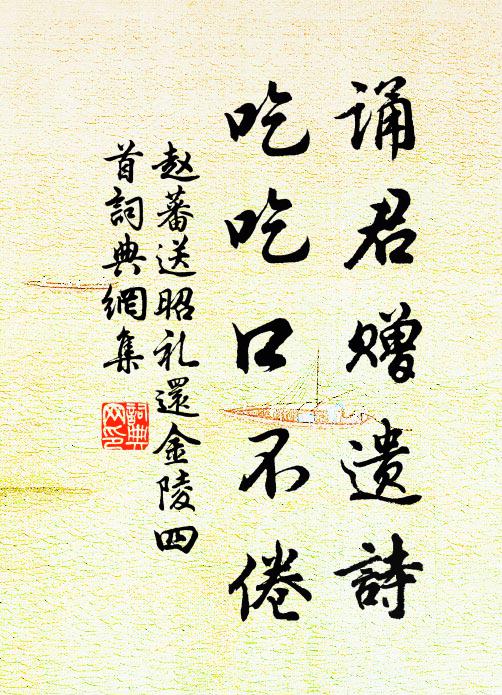 诵君赠遗詩
吃吃口不倦
赵蕃送昭礼還金陵四
首詞典網集
詞典
网印